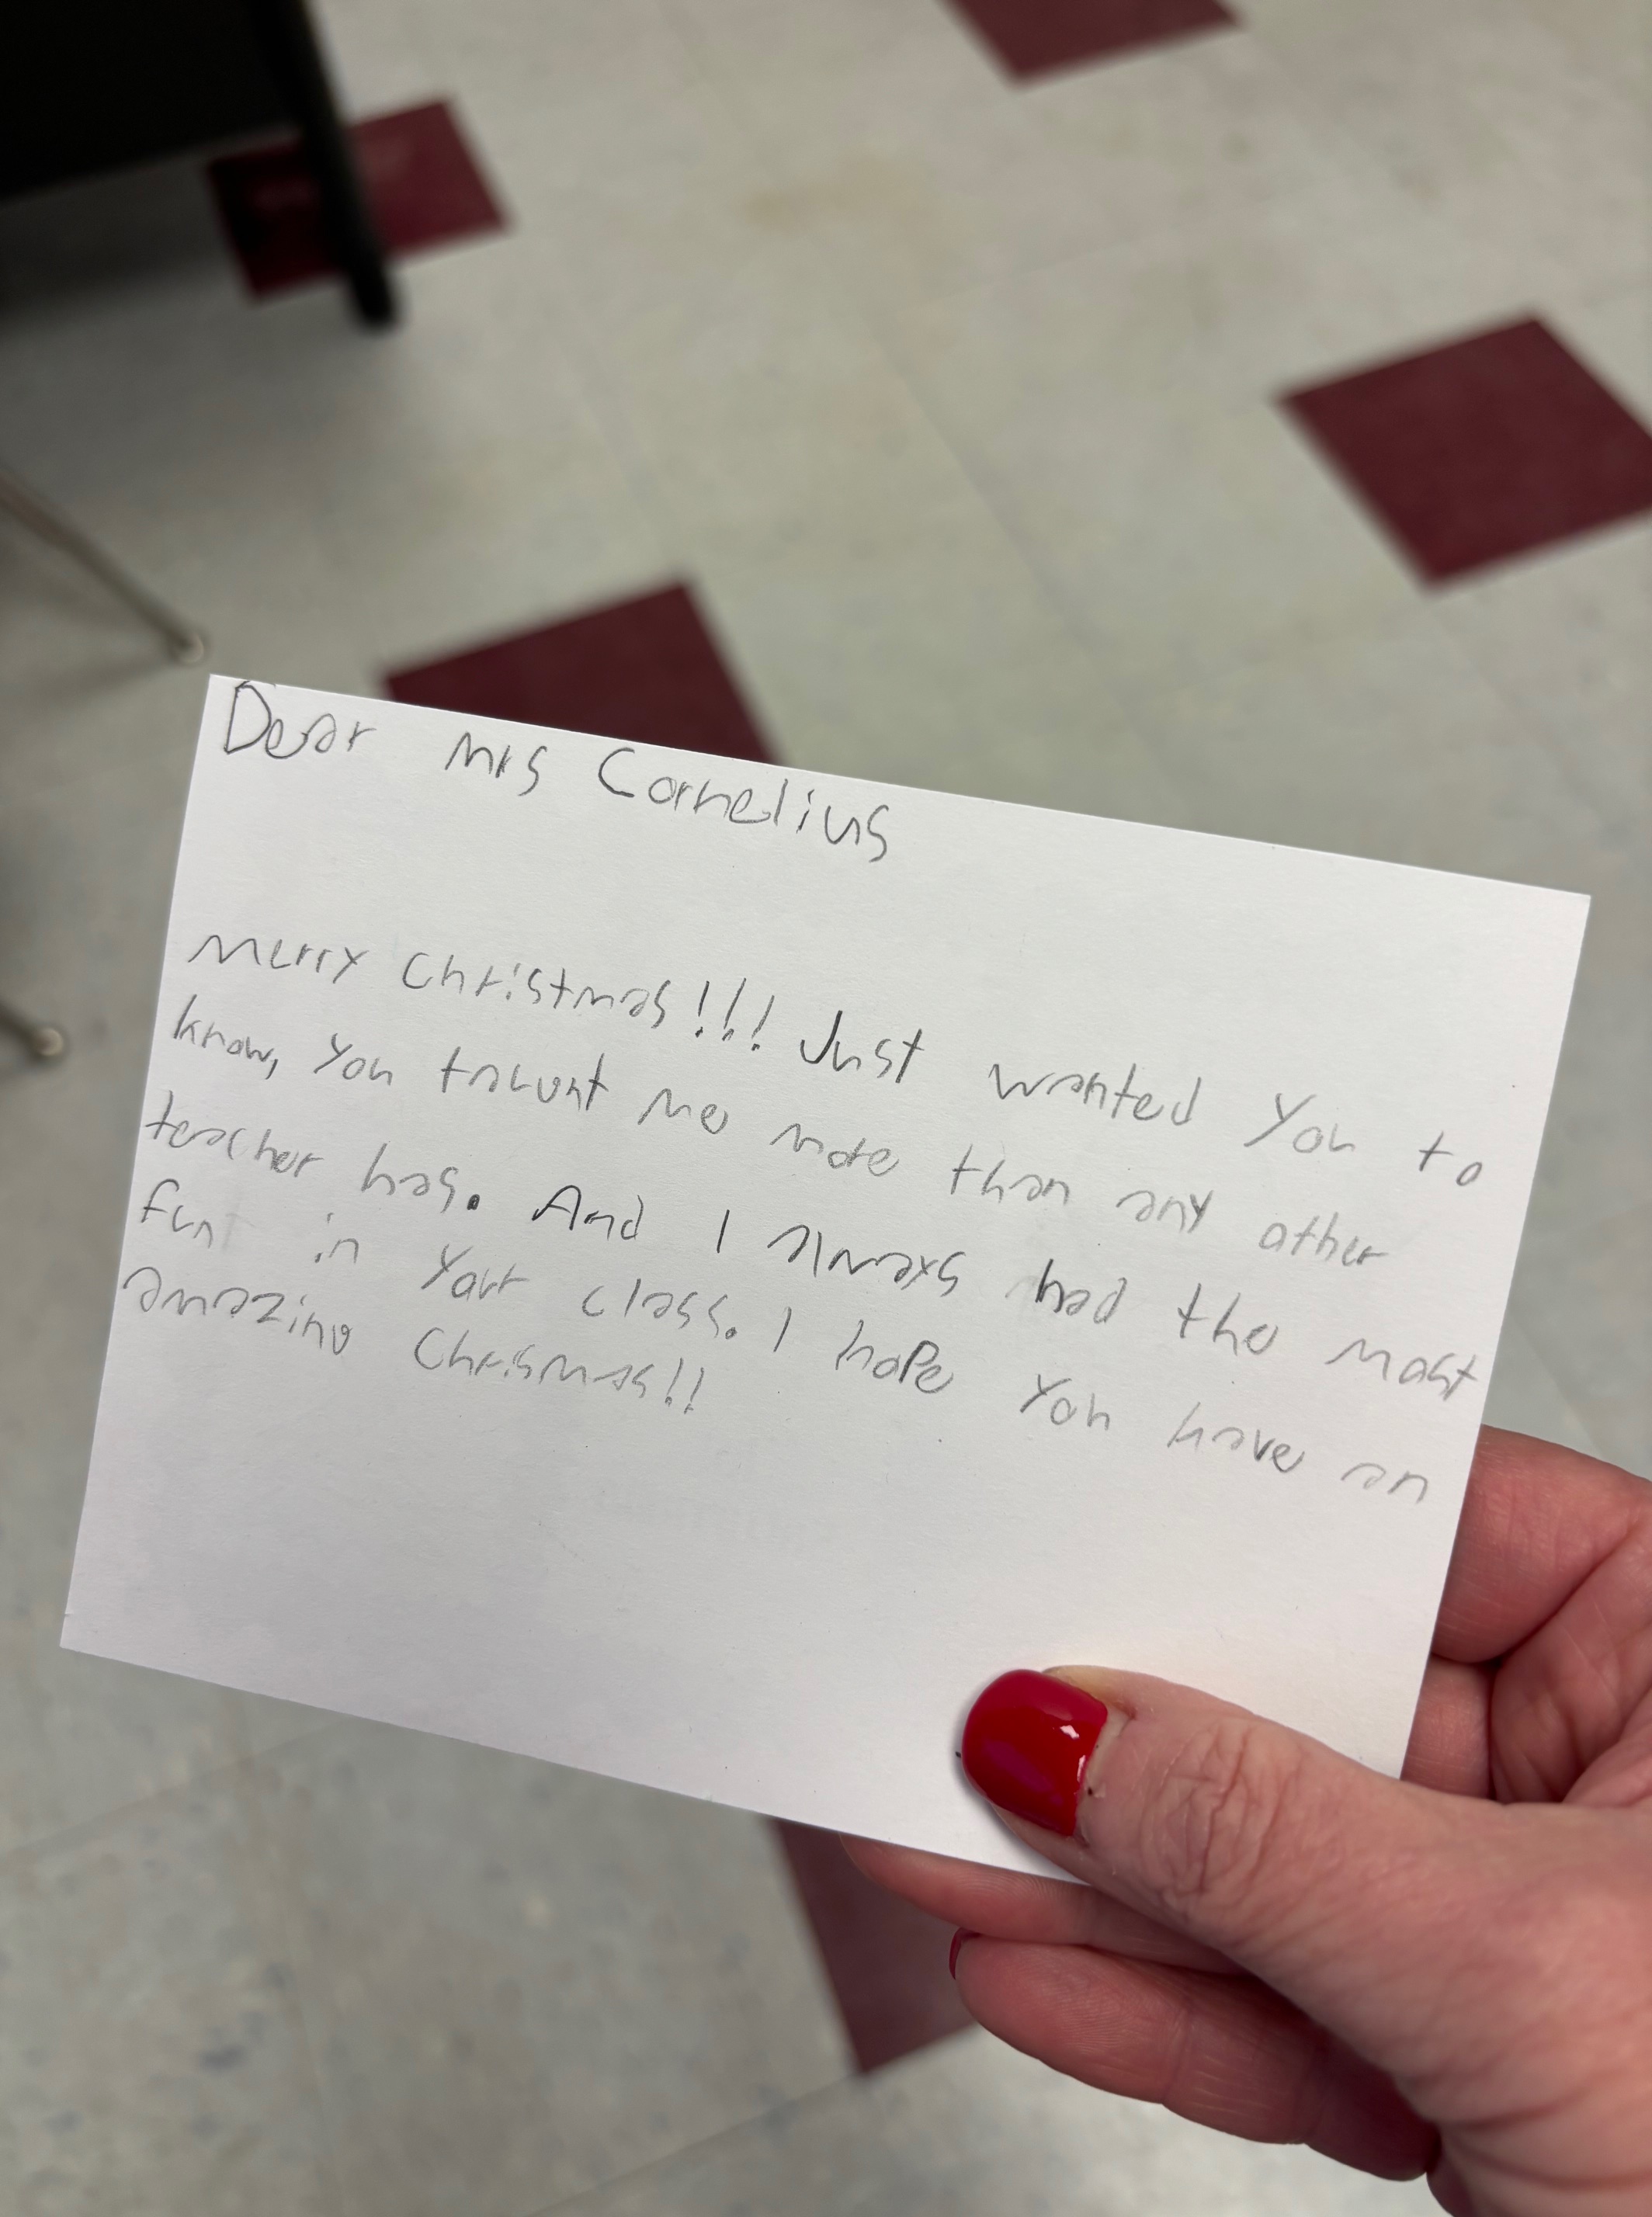 Dear Mrs Cornelius
Merry Christmas!!! Just wanted you to
know, you taught me more than any other
teacher has. And I always had the most
fun in your class. I hope you have an
amazing Chrismas!!